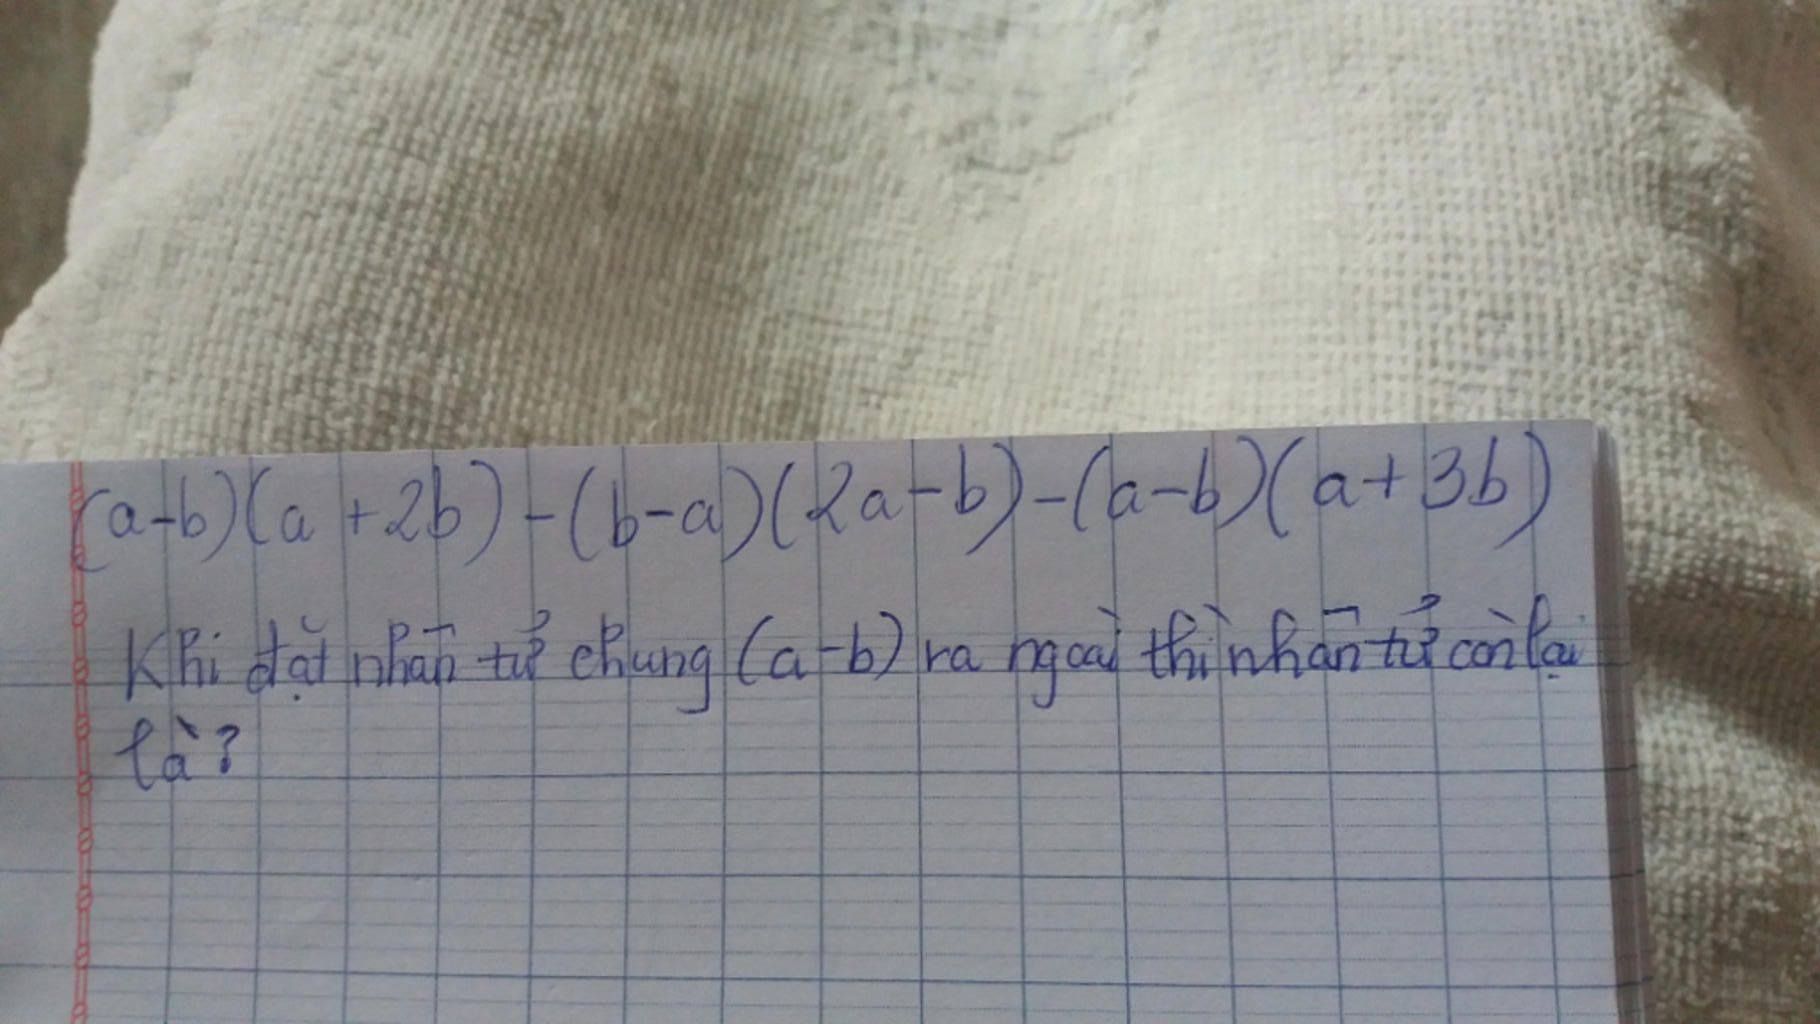 (a-b)(a+2b)-(b-a)(2a-b)-(a-b)(a+3b)
Khi đặt nhân tử chung (a-b) ra ngoài thì nhân tử còn lại
là?